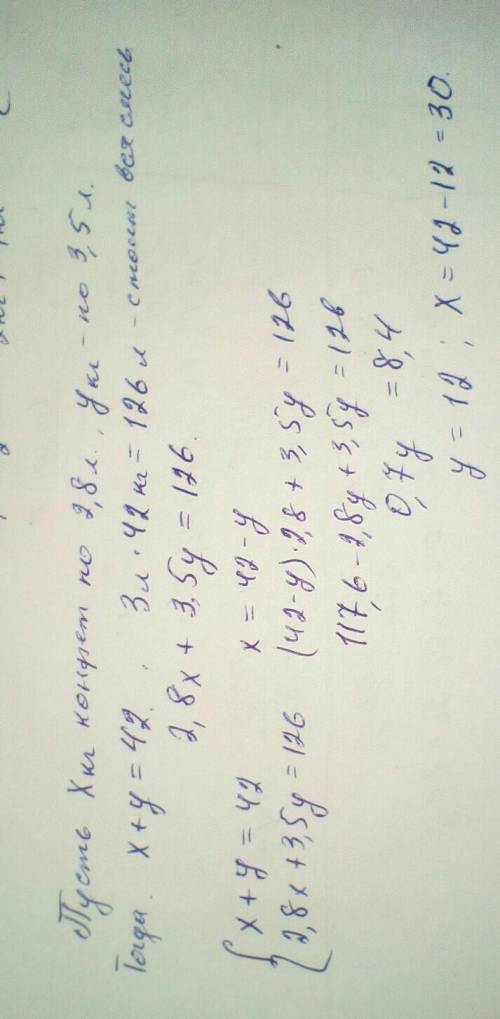 Пусть x кг конфет по 2,8 л., y кг - по 3,5 л.
Тогда. x + y = 42. , 3 л · 42 кг = 126 л - стоит вся смесь
2,8x + 3,5y = 126.
{ x + y = 42 x = 42 - y
2,8x + 3,5y = 126 (42 - y) · 2,8 + 3,5y = 126
117,6 - 2,8y + 3,5y = 126
0,7y = 8,4
y = 12 ; x = 42 - 12 = 30.